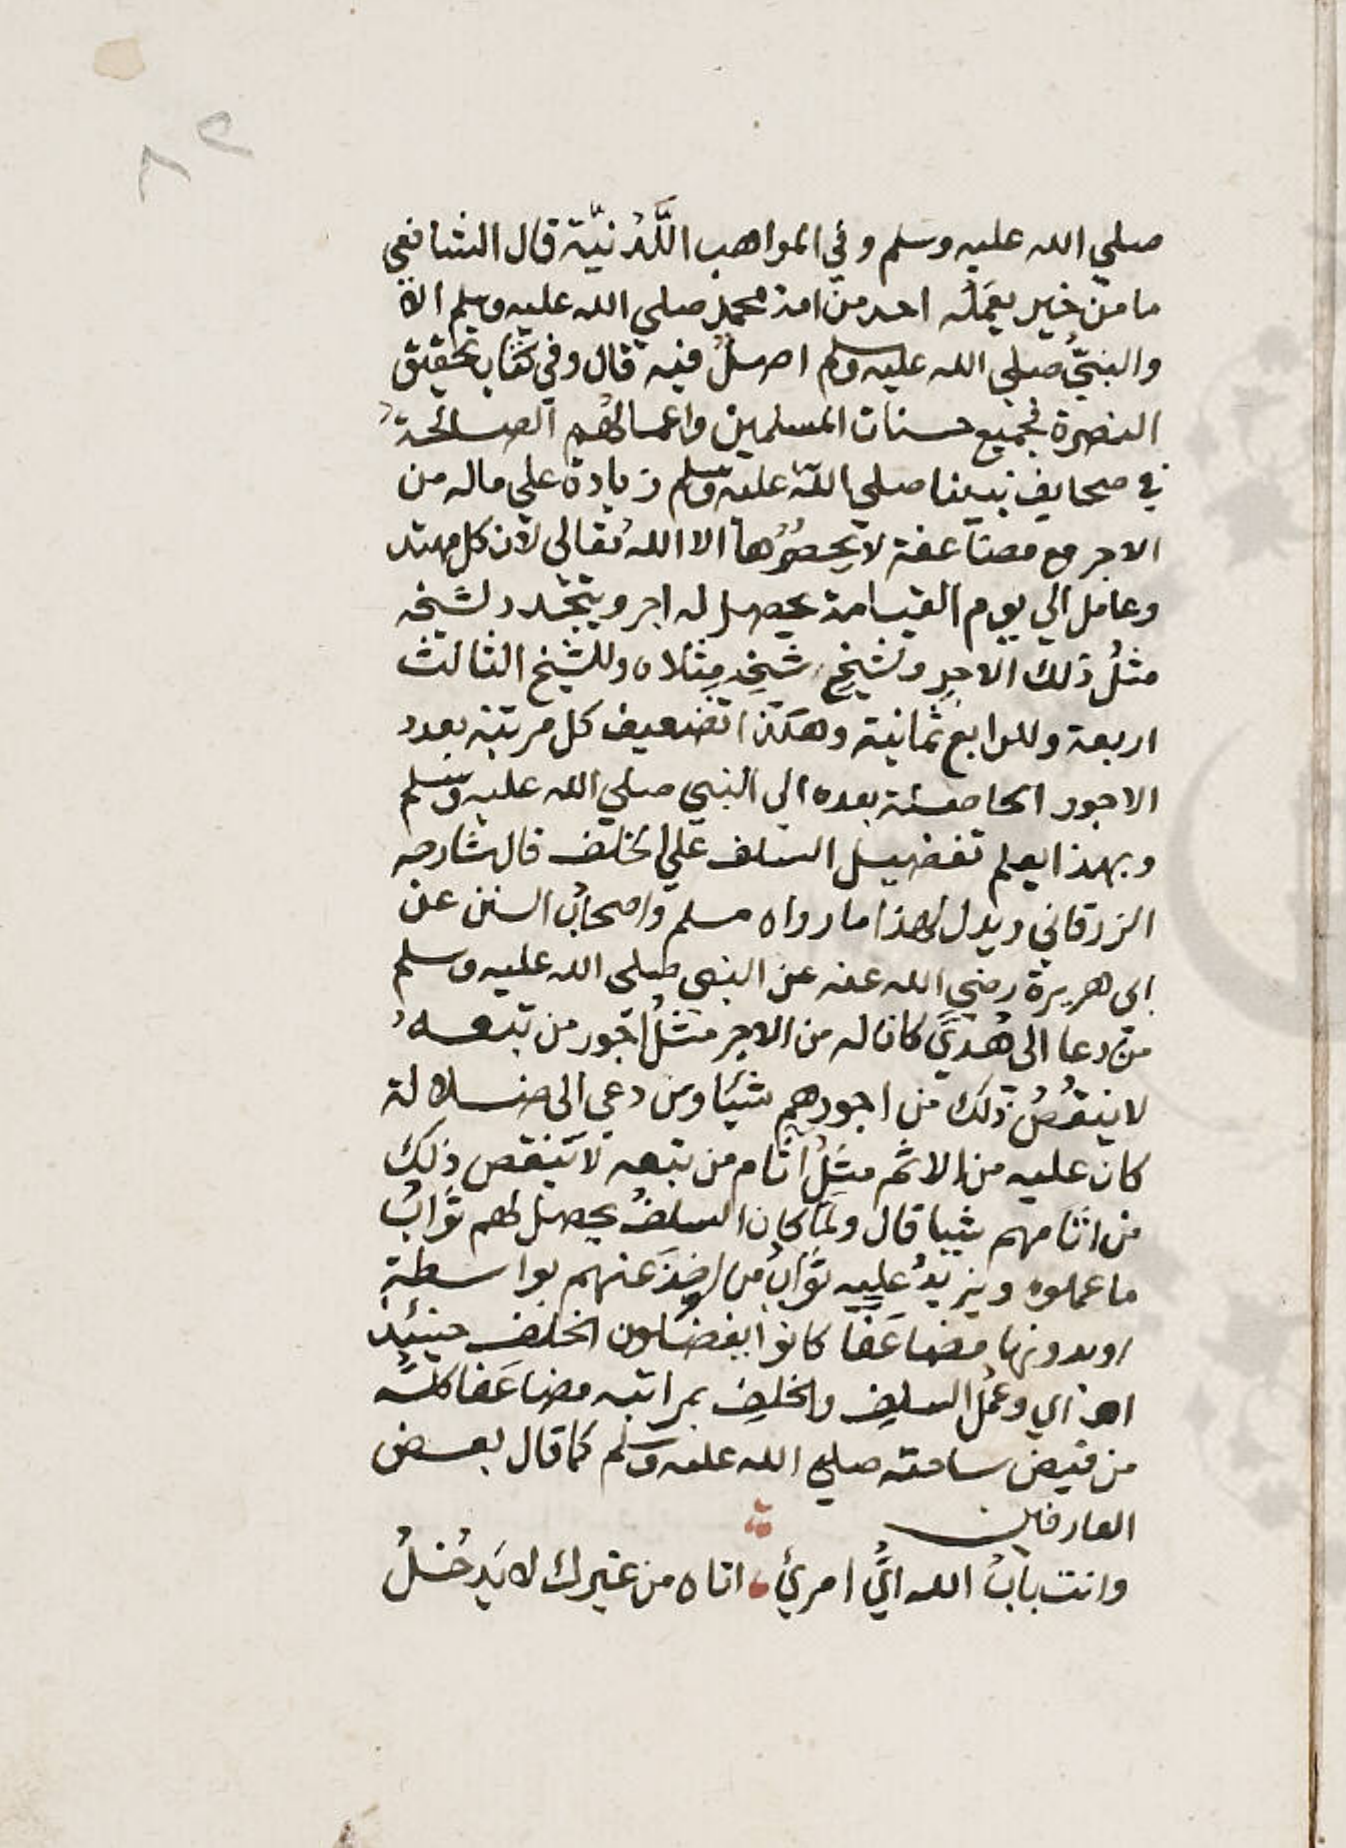 ٨٢
صلي الله عليه وسلم وفي المواهب اللَّدُنيّة قال الشافعي
ما من خير يعمَلُه احد من امة محمدٍ صلي الله عليه وسلم الا
والنبيُّ صلي الله عليه وسلم اصلٌ فيه قال وفي كتاب تحقيق
النصرة فجميع حسنات المسلمين واعمالهم الصالحة
في صحايف نبينا صلي الله عليه وسلم زيادة علي ماله من
الاجر مع مضاعفة لا يحصُرُها الا الله تعالى لان كل مهتد
وعامل الي يوم القيامة يحصل له اجر ويتجدد لشيخه
مثلُ ذلك الاجرِ ولشيخِ شيخِه مِثلاه وللشيخ الثالث
اربعة وللرابع ثمانية وهكذا تضعيف كل مرتبة بعدد
الاجور الحاصلة بعده الى النبي صلي الله عليه وسلم
وبهذا يعلم تفضيل السلف علي الخلف قال شارحه
الزرقاني ويدل لهذا ما رواه مسلم واصحابُ السنن عن
ابى هريرة رضي الله عنه عن النبي صلى الله عليه وسلم
من دعا الى هُدىً كان له من الاجر مثلُ اجور من تبعه
لا ينقُصُ ذلك من اجورهم شيئا ومن دعي الى ضلالة
كان عليه من الاثم مثلُ اثام من تبعه لا ينقص ذلك
من اثامهم شيا قال ولما كان السلفُ يحصل لهم ثوابُ
ما عملوه ويزيدُ عليه ثوابُ من اخذ عنهم بواسطةٍ
او بدونها مضاعَفا كانوا يفضلون الخلف حينئذٍ
اهـ اي وعملُ السلفِ والخلفِ بمراتبه مضاعَفا كلُّه
من فيض ساحته صلي الله عليه وسلم كما قال بعض
العارفين
وانت بابُ الله ايُّ امرئ اتاه من غيرك لا يَدخُلُ